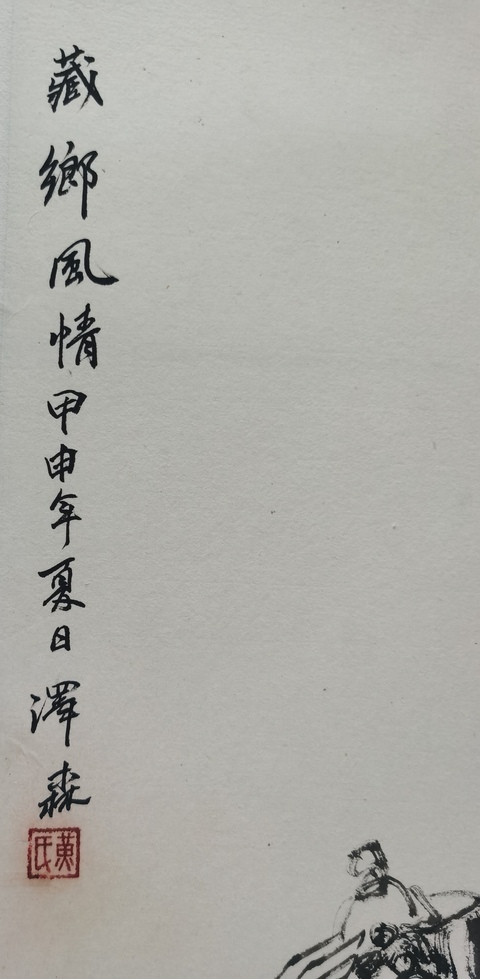 藏鄉風情甲申年夏日澤森
黄氏